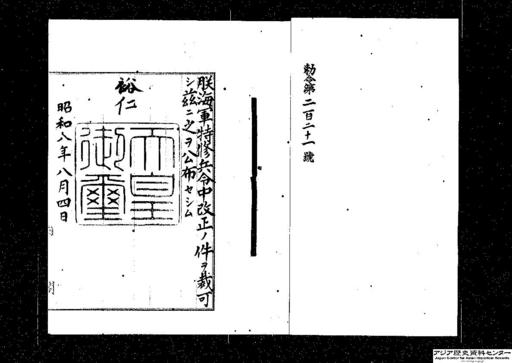 勅令第二百二十一號
朕海軍特修兵令中改正ノ件ヲ裁可
シ茲ニ之ヲ公布セシム
裕仁
天皇御璽
昭和八年八月四日
アジア歴史資料センター
Japan Center for Asian Historical Records